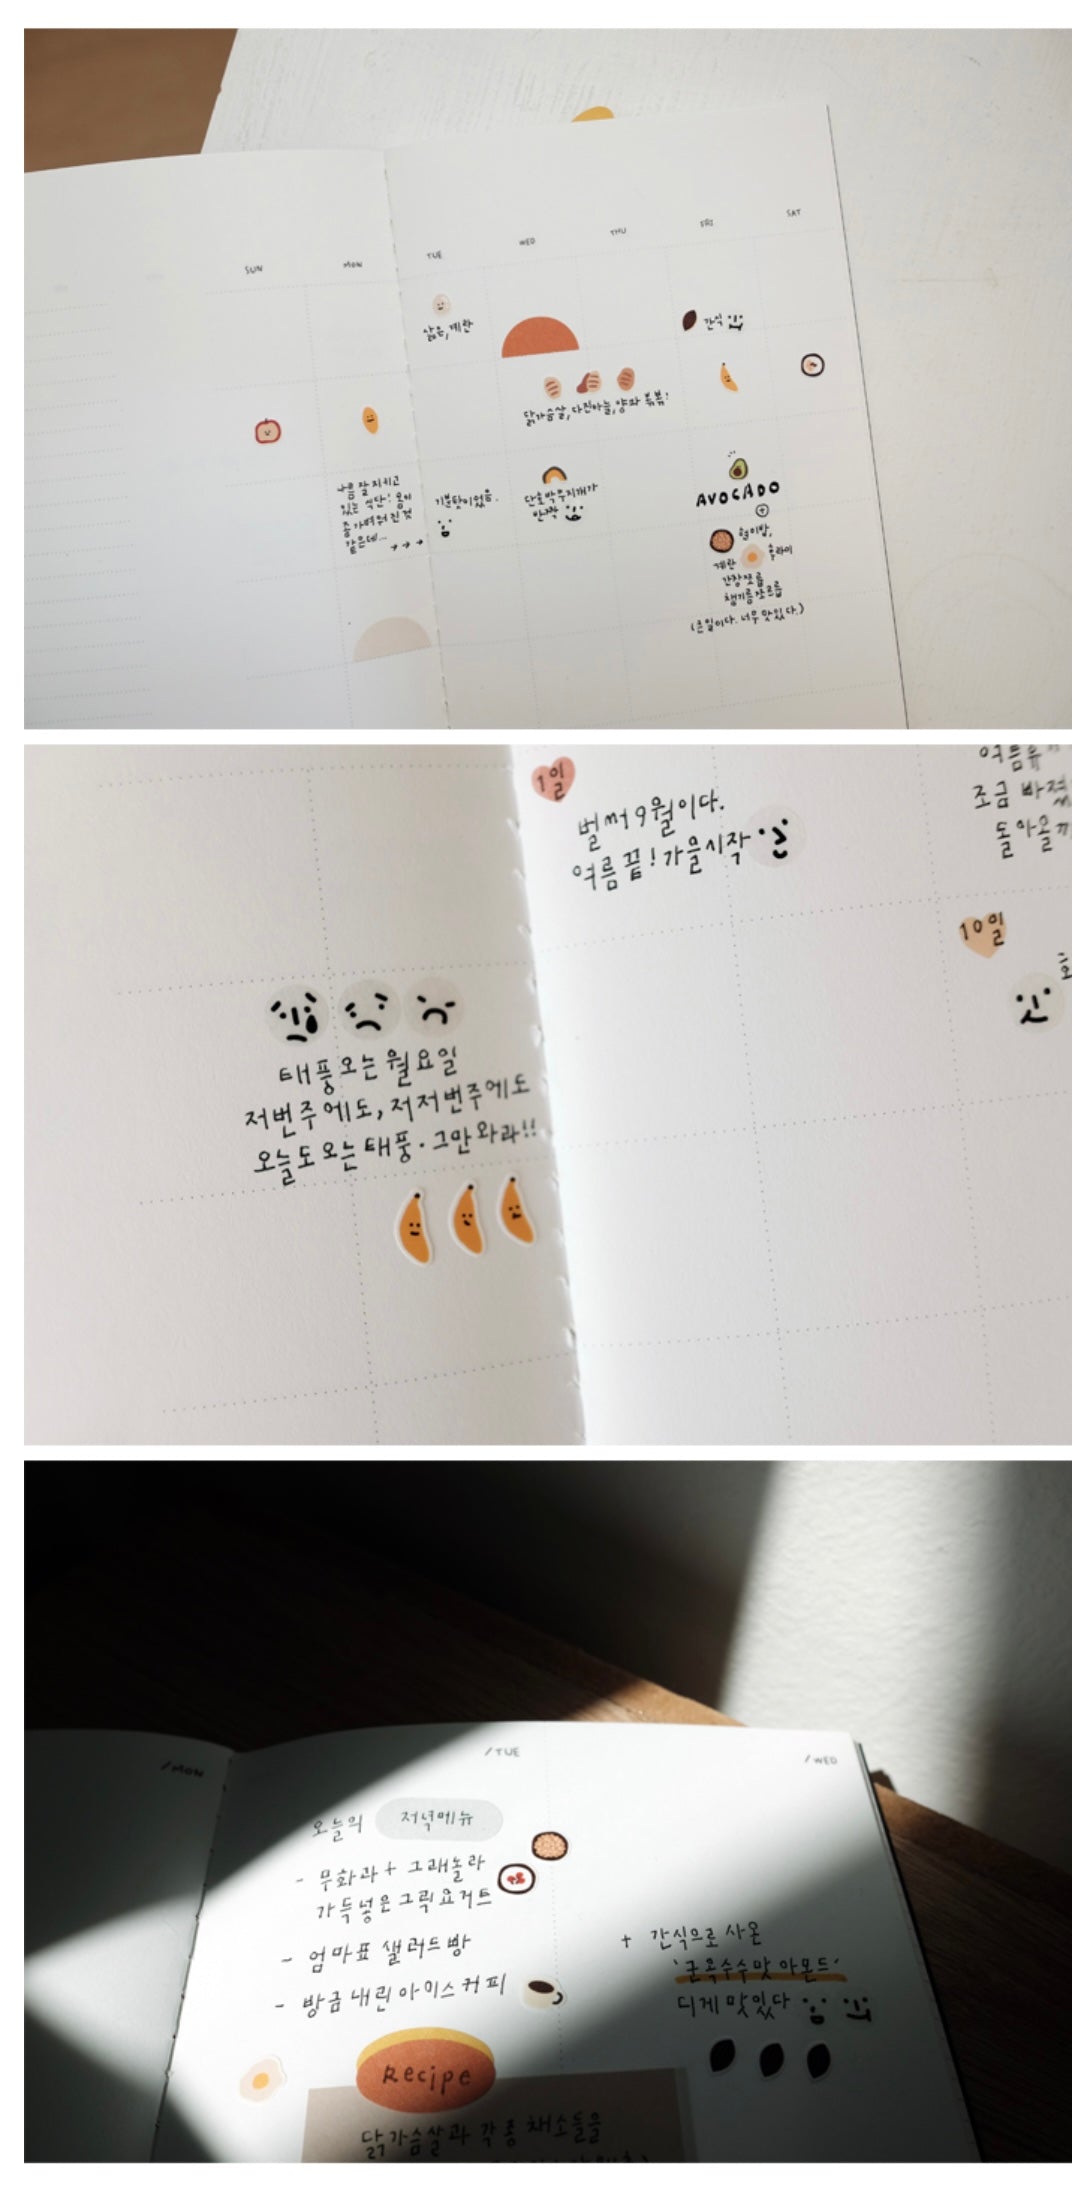 SUN
MON
TUE
WED
THU
FRI
SAT
삶은, 계란
간식
닭가슴살, 다진마늘, 양파 볶음!
나름 잘 지키고
있는 식단! 몸이
좀 가벼워진 것
같은데...
기분탓이었음.
단호박무지개가
반짝
AVOCADO
+
현미밥,
계란
후라이
간장쪼륵
챔기름쪼르륵
(큰일이다. 너무 맛있다.)
1일
벌써 9월이다.
여름 끝! 가을시작
조금
10일
태풍 오는 월요일
저번주에도, 저저번주에도
오늘도 오는 태풍. 그만 와라!!
/MON
/TUE
/WED
오늘의 저녁메뉴
- 무화과 + 그래놀라
가득넣은 그릭요거트
- 엄마표 샐러드빵
- 방금 내린 아이스커피
+ 간식으로 사온
'군옥수수맛 아몬드'
디게 맛있다
Recipe
닭가슴살과 각종 채소들을